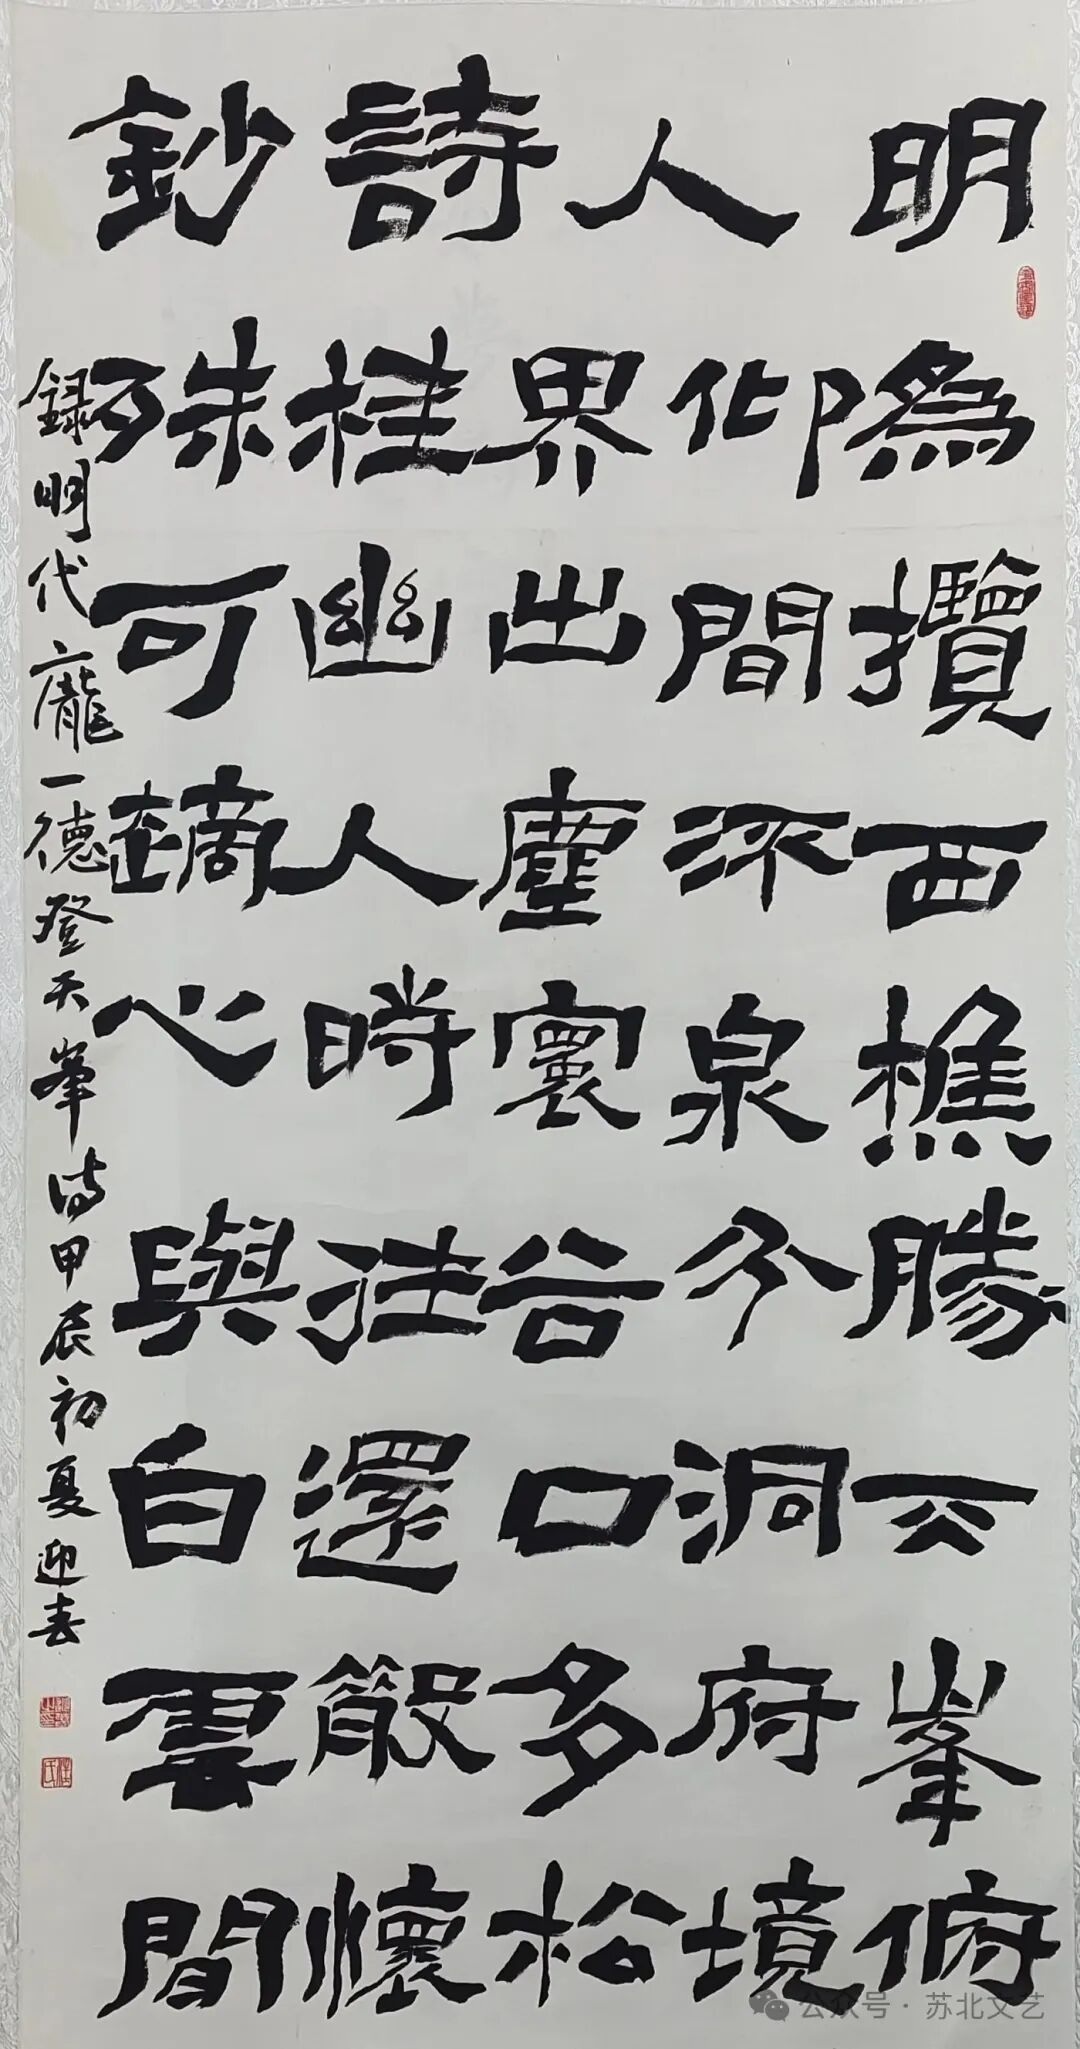 明人詩鈔
為攬西樵勝天峯俯
仰間流泉分洞府境
界出塵寰谷口多松
桂幽人時往還散懷
殊可適心與白雲間
録明代龐一德登天峯詩甲辰初夏迎春
公众号·苏北文艺